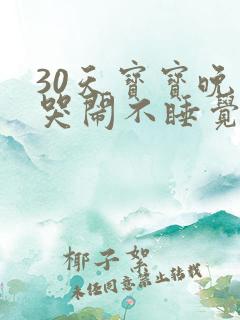 30天寶寶晚
哭鬧不睡覺
椰子絮
未經同意禁止轉載